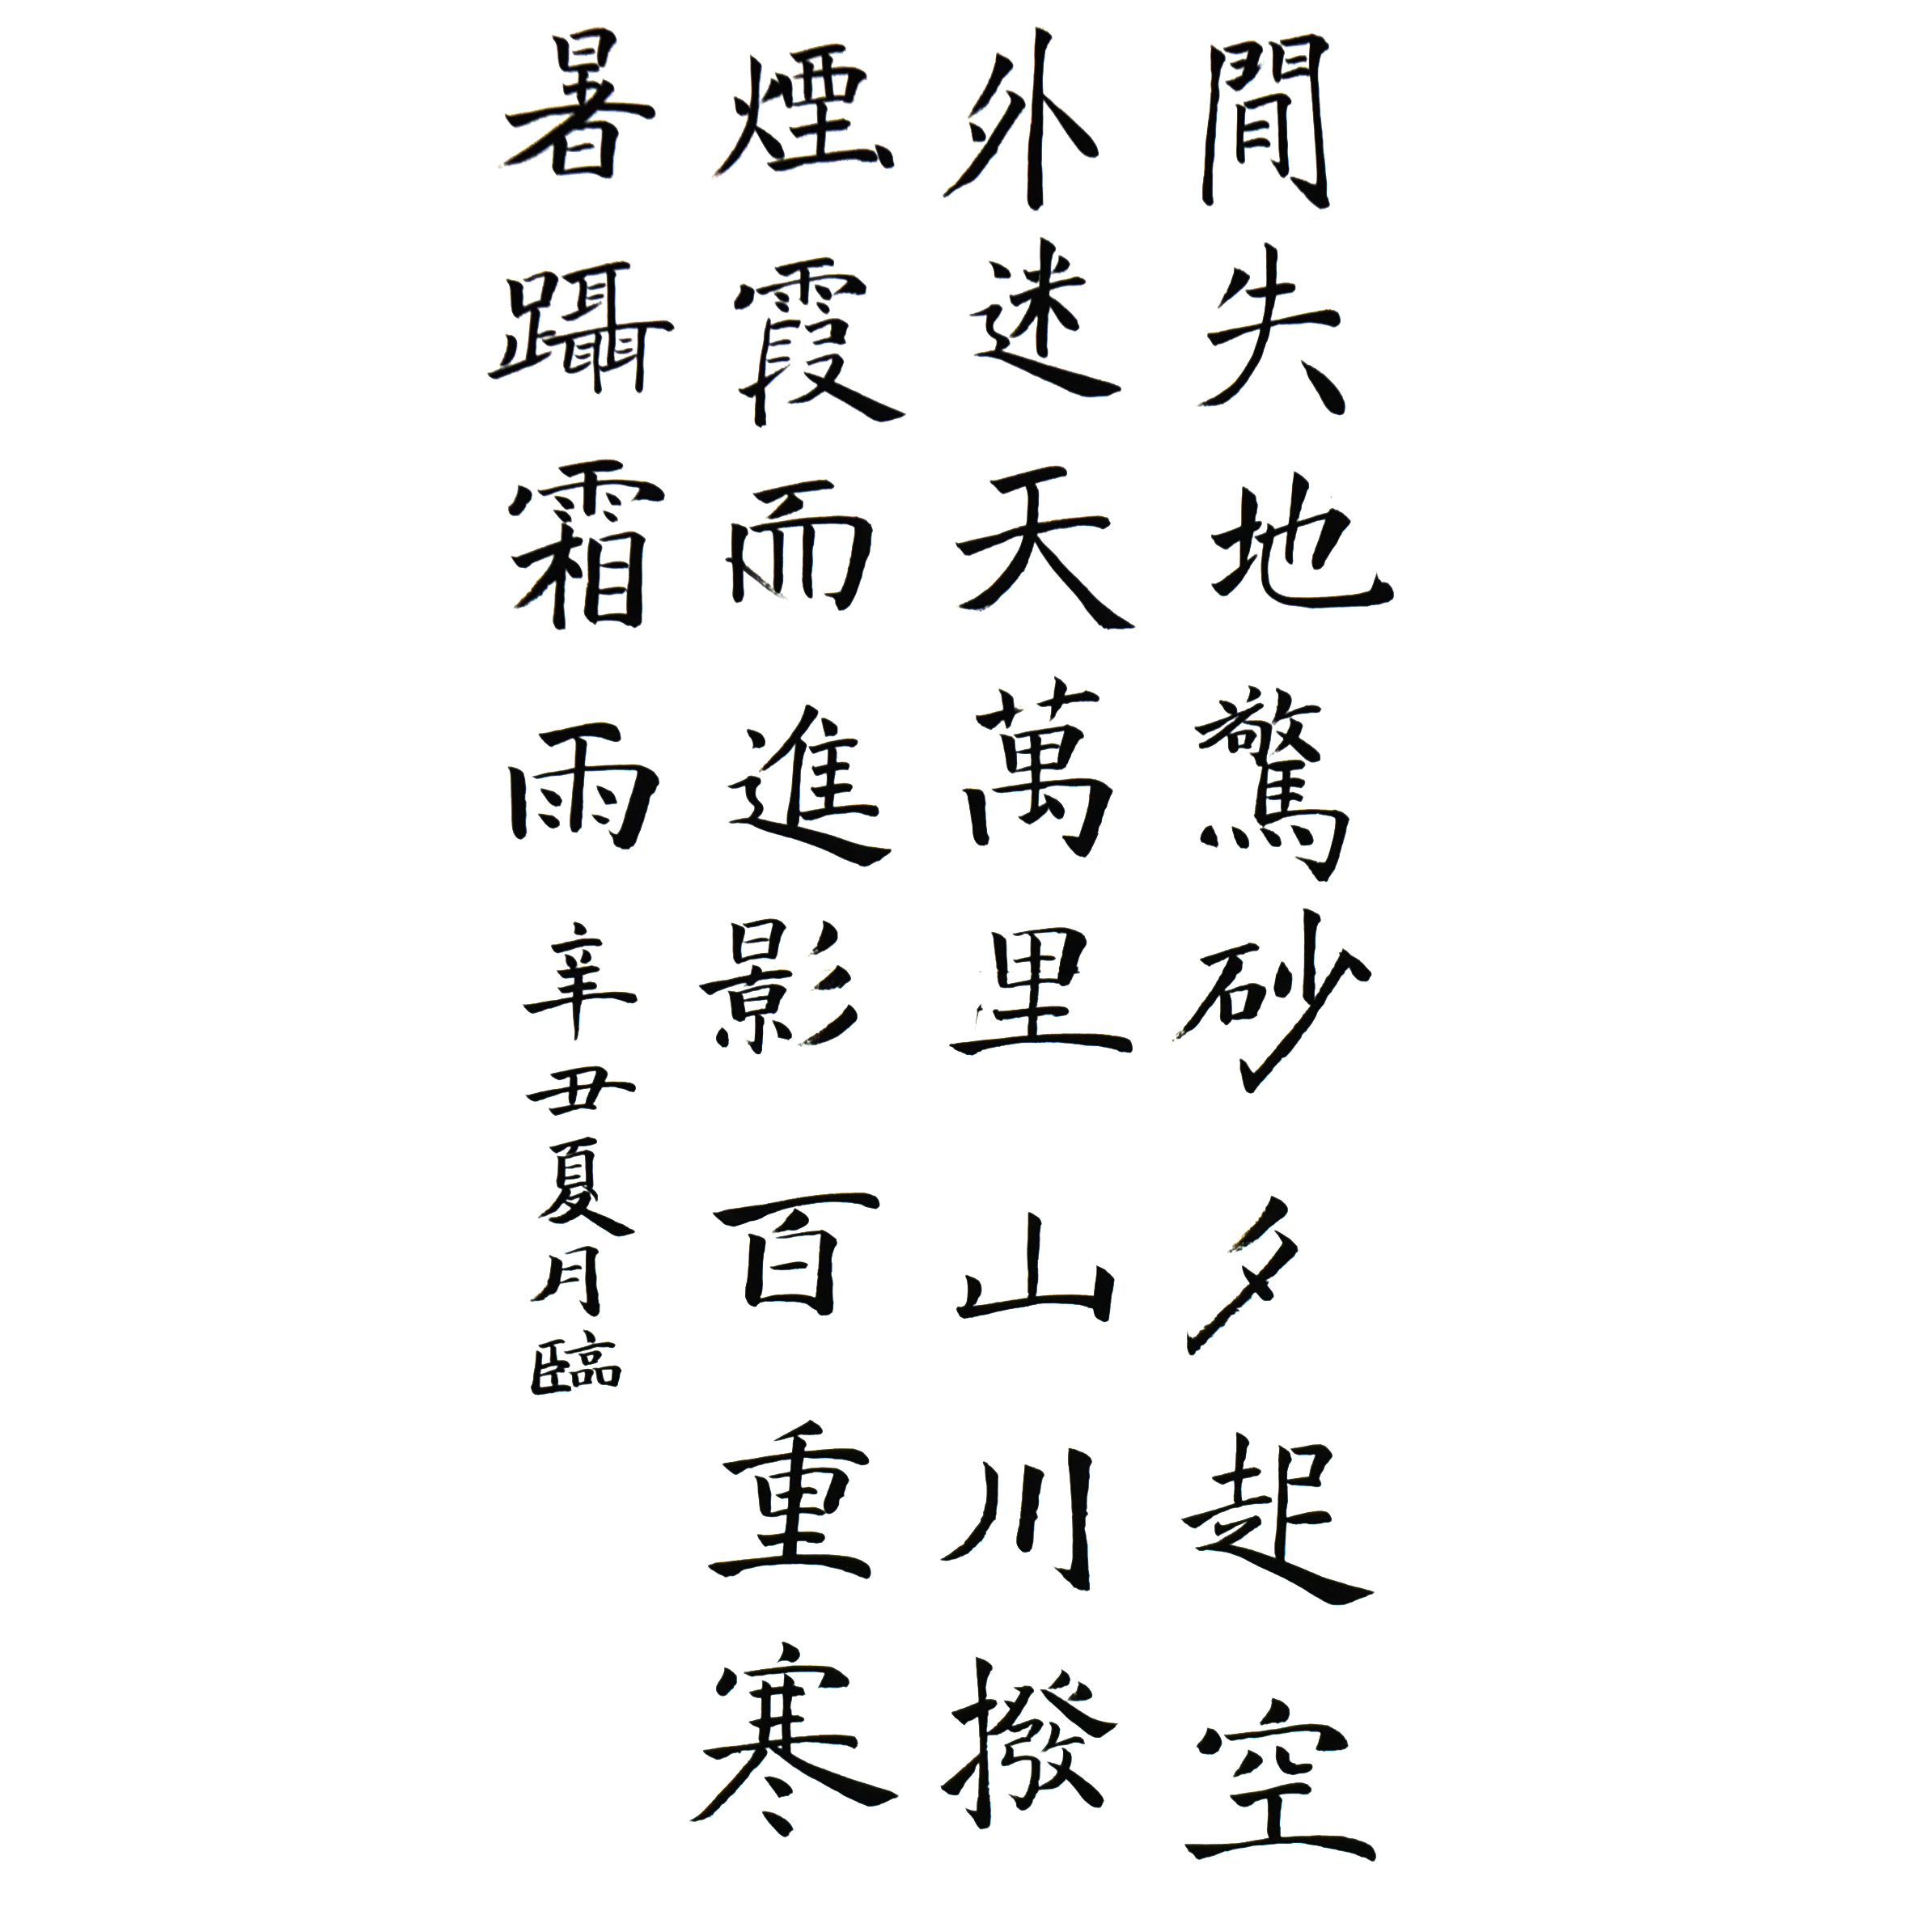 間失地驚砂夕起空
外迷天萬里山川撥
煙霞而進影百重寒
暑躡霜雨辛丑夏月臨